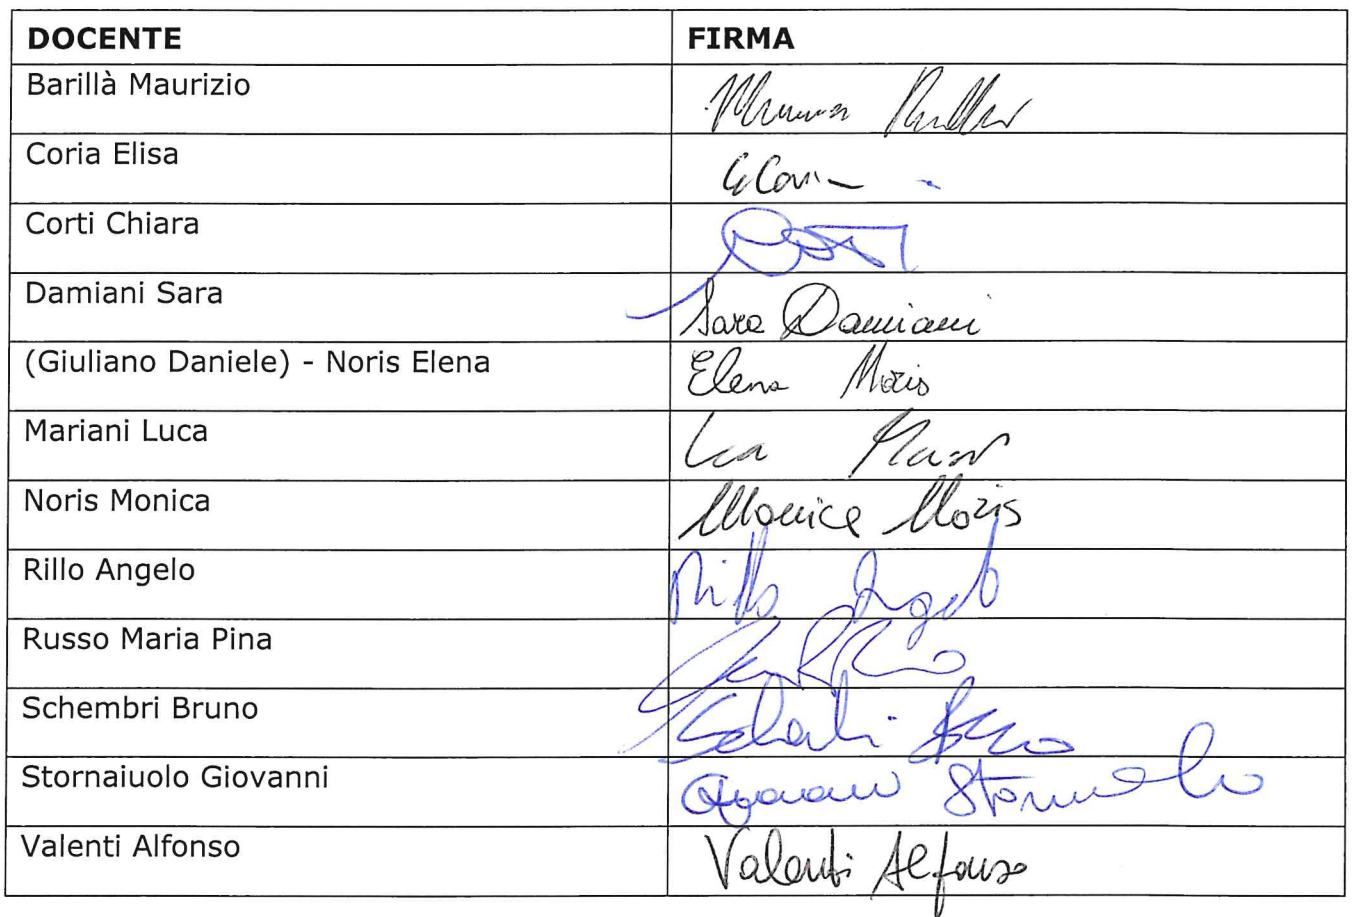 DOCENTE FIRMA
Barillà Maurizio
Coria Elisa
Corti Chiara
Damiani Sara Sara Damiani
(Giuliano Daniele) - Noris Elena Elena Noris
Mariani Luca
Noris Monica Monica Noris
Rillo Angelo Rillo Angelo
Russo Maria Pina
Schembri Bruno
Stornaiuolo Giovanni
Valenti Alfonso Valenti Alfonso